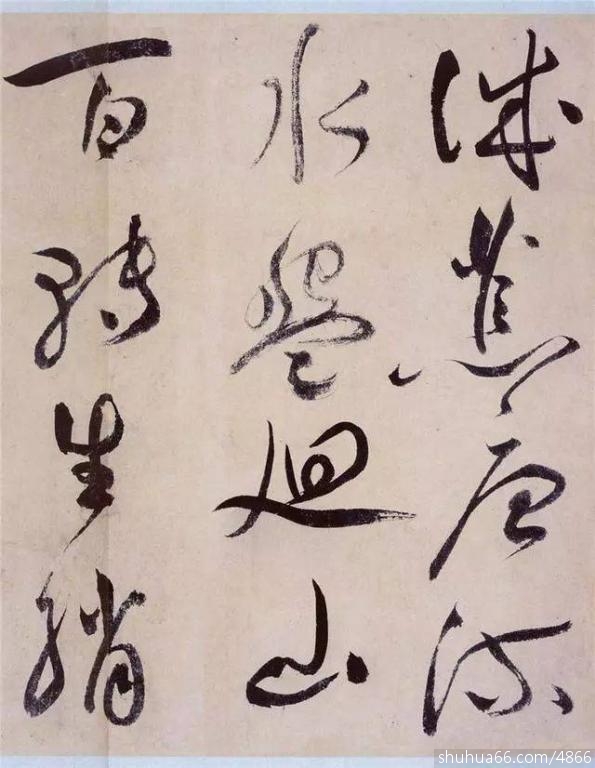 誠荒唐流
水盤廻山
百轉生綃
shuhua66.com/4866